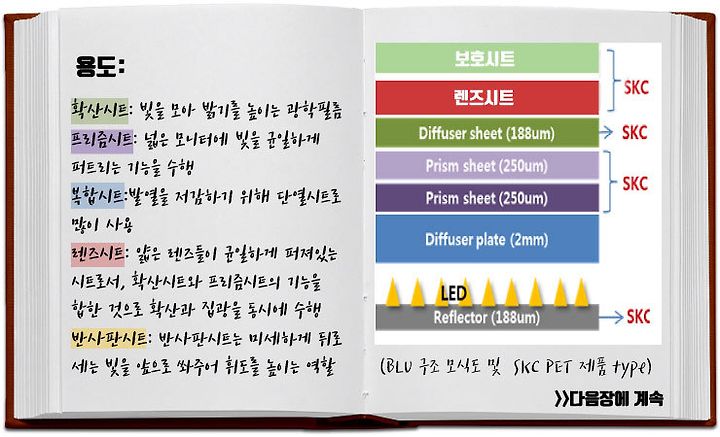 용도:
확산시트: 빛을 모아 밝기를 높이는 광학필름
프리즘시트: 넓은 모니터에 빛을 균일하게
퍼트리는 기능을 수행
복합시트:발열을 저감하기 위해 단열시트로
많이 사용
렌즈시트: 얇은 렌즈들이 균일하게 퍼져있는
시트로서, 확산시트와 프리즘시트의 기능을
합한 것으로 확산과 집광을 동시에 수행
반사판시트: 반사판시트는 미세하게 뒤로
세는 빛을 앞으로 쏴주어 휘도를 높이는 역할
보호시트
렌즈시트
SKC
Diffuser sheet (188um)
SKC
Prism sheet (250um)
Prism sheet (250um)
SKC
Diffuser plate (2mm)
LED
Reflector (188um)
SKC
(BLU 구조 모식도 및 SKC PET 제품 type)
>>다음장에 계속